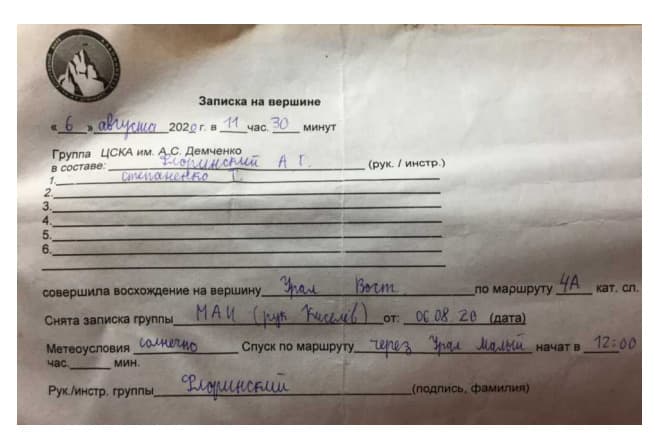 Записка на вершине
« 6 » августа 2020 г. в 11 час. 30 минут
Группа ЦСКА им. А.С. Демченко
в составе: Флоринский А Г. (рук. / инстр.)
1. Степаненко Т.
2.
3.
4.
5.
6.
совершила восхождение на вершину Урал Вост по маршруту 4А кат. сл.
Снята записка группы МАИ (рук Киселев) от: 06 08 20 (дата)
Метеоусловия солнечно Спуск по маршруту через Урал Малый начат в 12:00
час. мин.
Рук./инстр. группы Флоринский (подпись, фамилия)